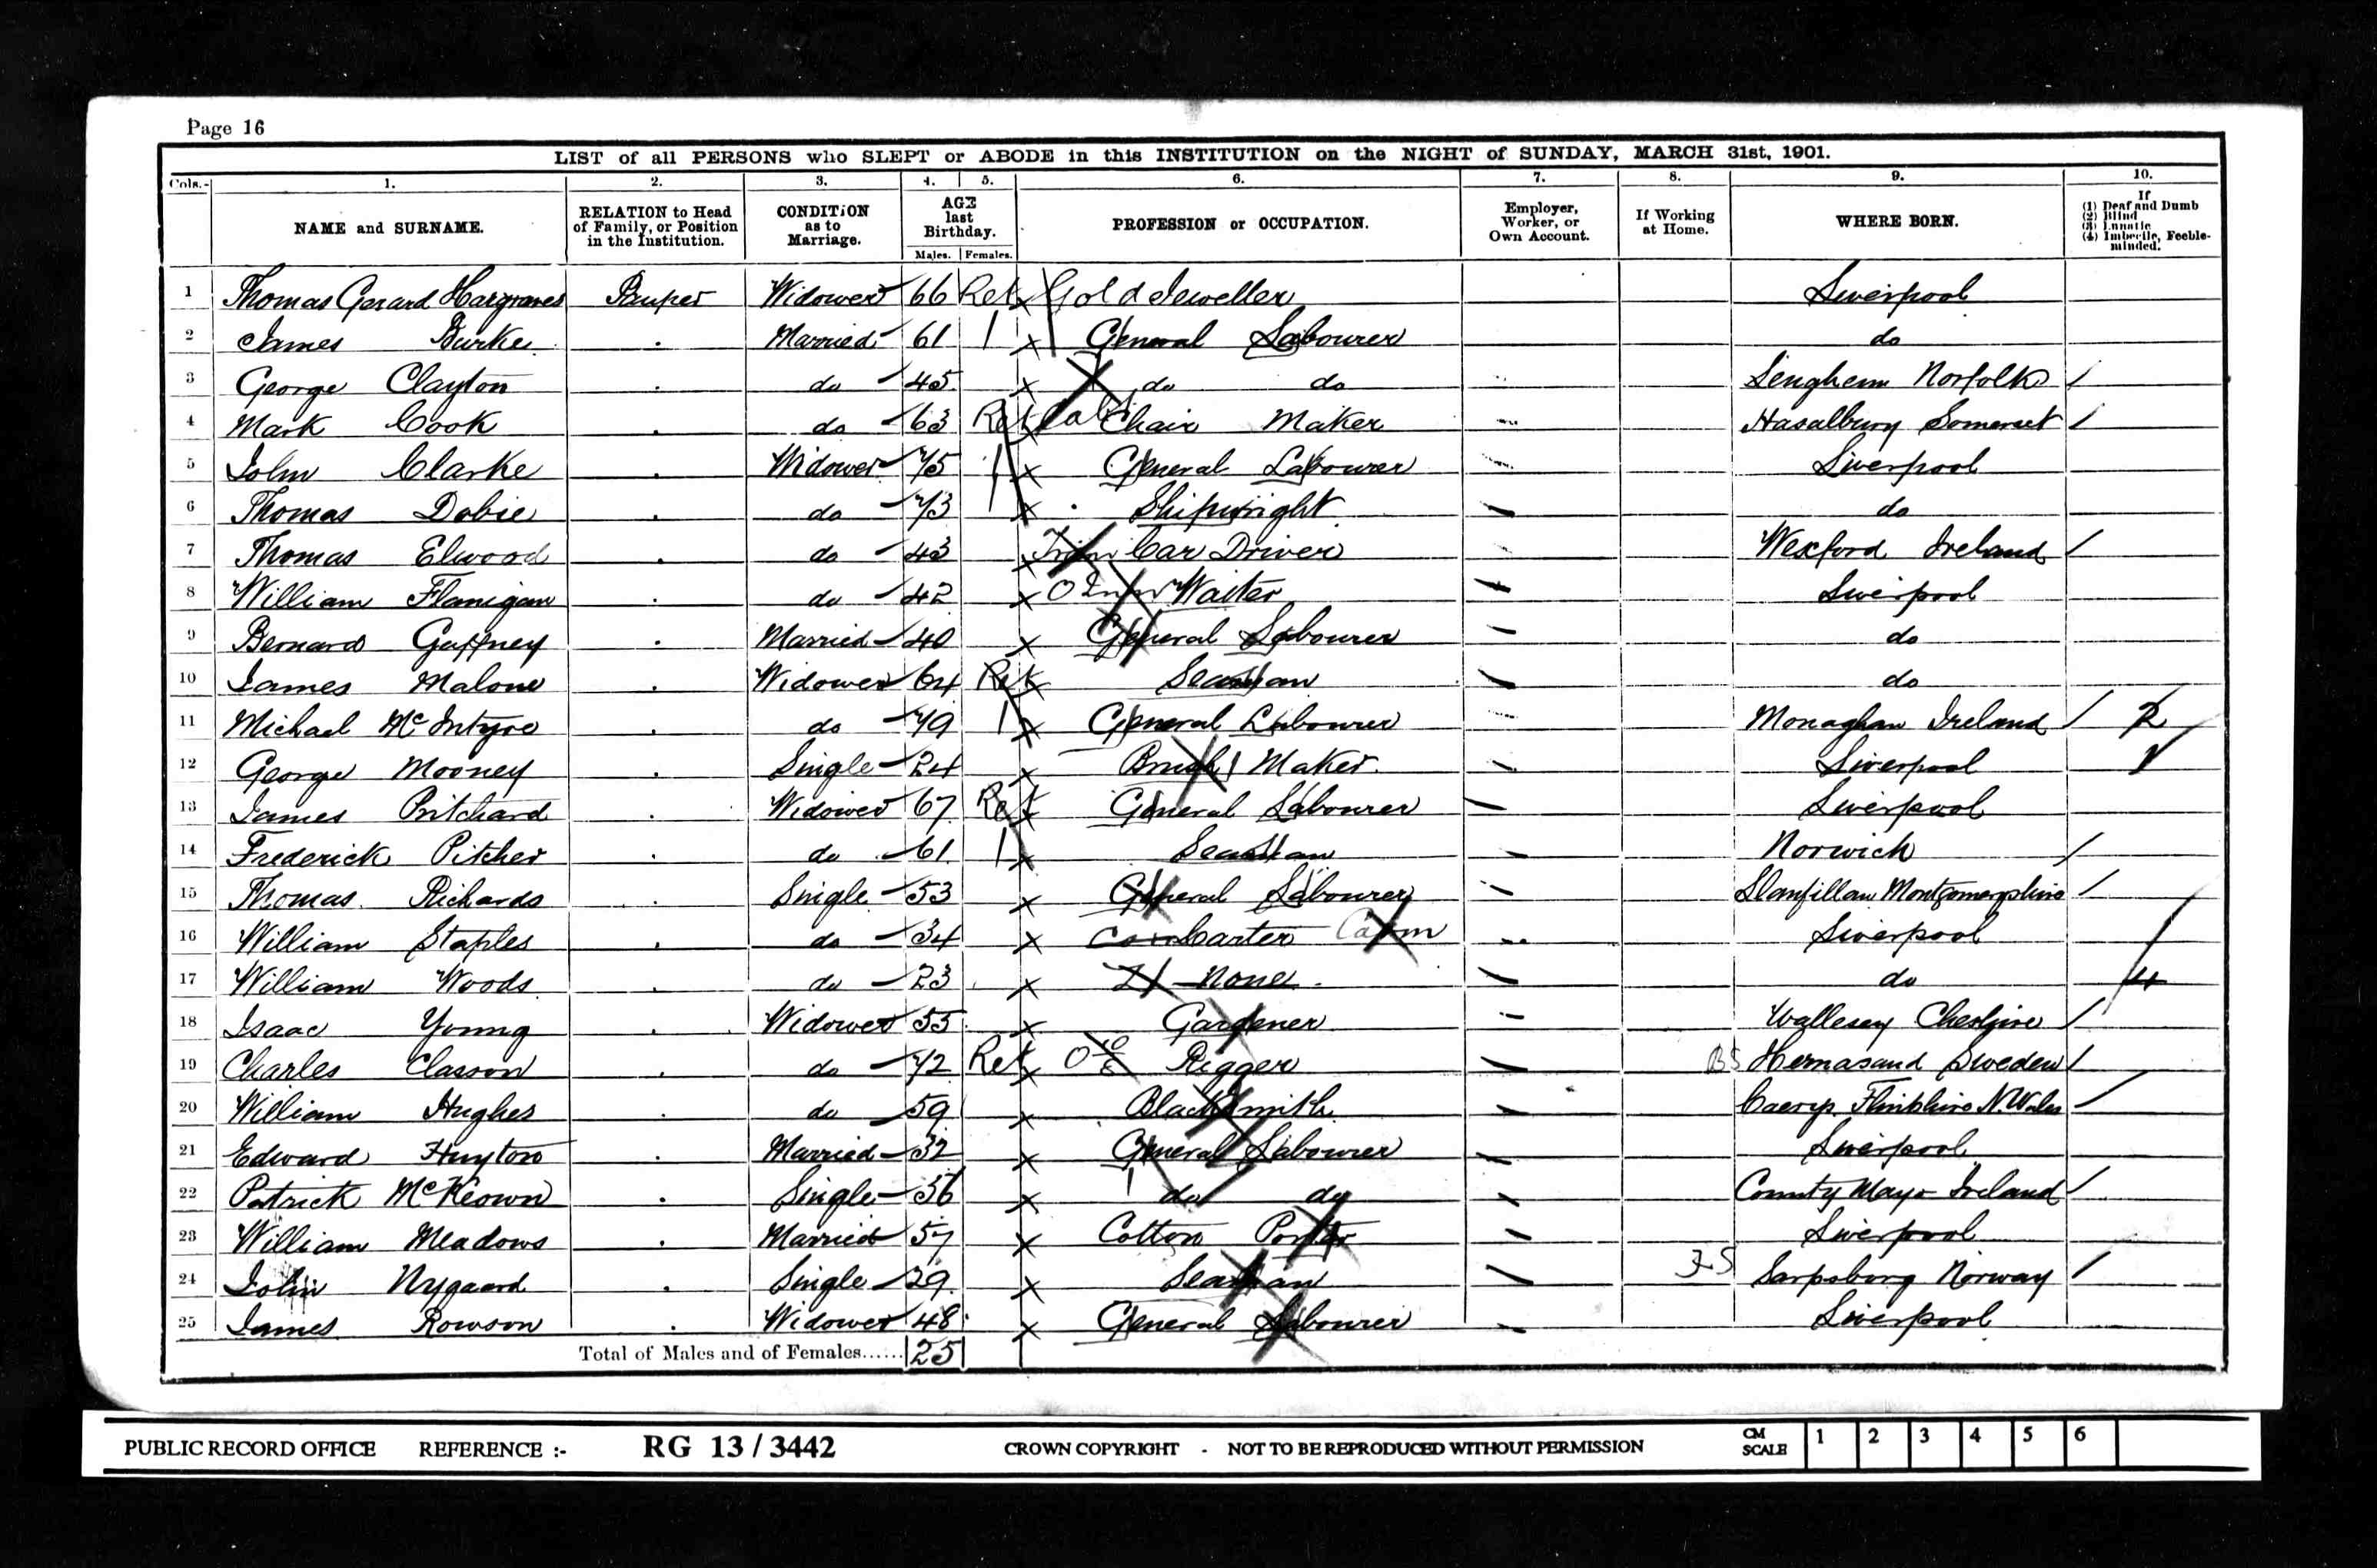 Page 16
LIST of all PERSONS who SLEPT or ABODE in this INSTITUTION on the NIGHT of SUNDAY, MARCH 31st, 1901.
Cols.- 1. 2. 3. 4. 5. 6. 7. 8. 9. 10.
NAME and SURNAME. RELATION to Head of Family, or Position in the Institution. CONDITION as to Marriage. AGE last Birthday. Males. Females. PROFESSION or OCCUPATION. Employer, Worker, or Own Account. If Working at Home. WHERE BORN. If (1) Deaf and Dumb (2) Blind (3) Lunatic (4) Imbecile, Feeble-minded.
1 Thomas Gerard Hargraves Pauper Widower 66 Ret Gold Jeweller Liverpool
2 James Burke Married 61 General Labourer do
3 George Clayton do 45 do do Lengheim Norfolk
4 Mark Cook do 63 Ret Chair Maker Hasalbury Somerset
5 John Clarke Widower 75 General Labourer Liverpool
6 Thomas Dobie do 73 Shipwright do
7 Thomas Elwood do 43 Tram Car Driver Wexford Ireland
8 William Flanigan do 42 Waiter Liverpool
9 Bernard Gaffney Married 40 General Labourer do
10 James Malone Widower 64 Ret Seaman do
11 Michael McIntyre do 79 General Labourer Monaghan Ireland 2
12 George Mooney Single 24 Brush Maker Liverpool
13 James Pritchard Widower 67 Ret General Labourer Liverpool
14 Frederick Pitcher do 61 Seaman Norwich
15 Thomas Richards Single 53 General Labourer Llanfillan Montgomeryshire
16 William Staples do 34 Carter Liverpool
17 William Woods do 23 None do 4
18 Isaac Young Widower 55 Gardener Wallesey Cheshire
19 Charles Classon do 72 Ret Rigger BS Hernasand Sweden
20 William Hughes do 59 Blacksmith Caerys Flintshire N. Wales
21 Edward Huyton Married 32 General Labourer Liverpool
22 Patrick McKeown Single 36 do do County Mayo Ireland
23 William Meadows Married 57 Cotton Porter Liverpool
24 John Nygaard Single 29 Seaman Sarpsborg Norway
25 James Rowson Widower 48 General Labourer Liverpool
Total of Males and of Females...... 25
PUBLIC RECORD OFFICE REFERENCE :- RG 13 / 3442 CROWN COPYRIGHT - NOT TO BE REPRODUCED WITHOUT PERMISSION CM SCALE 1 2 3 4 5 6